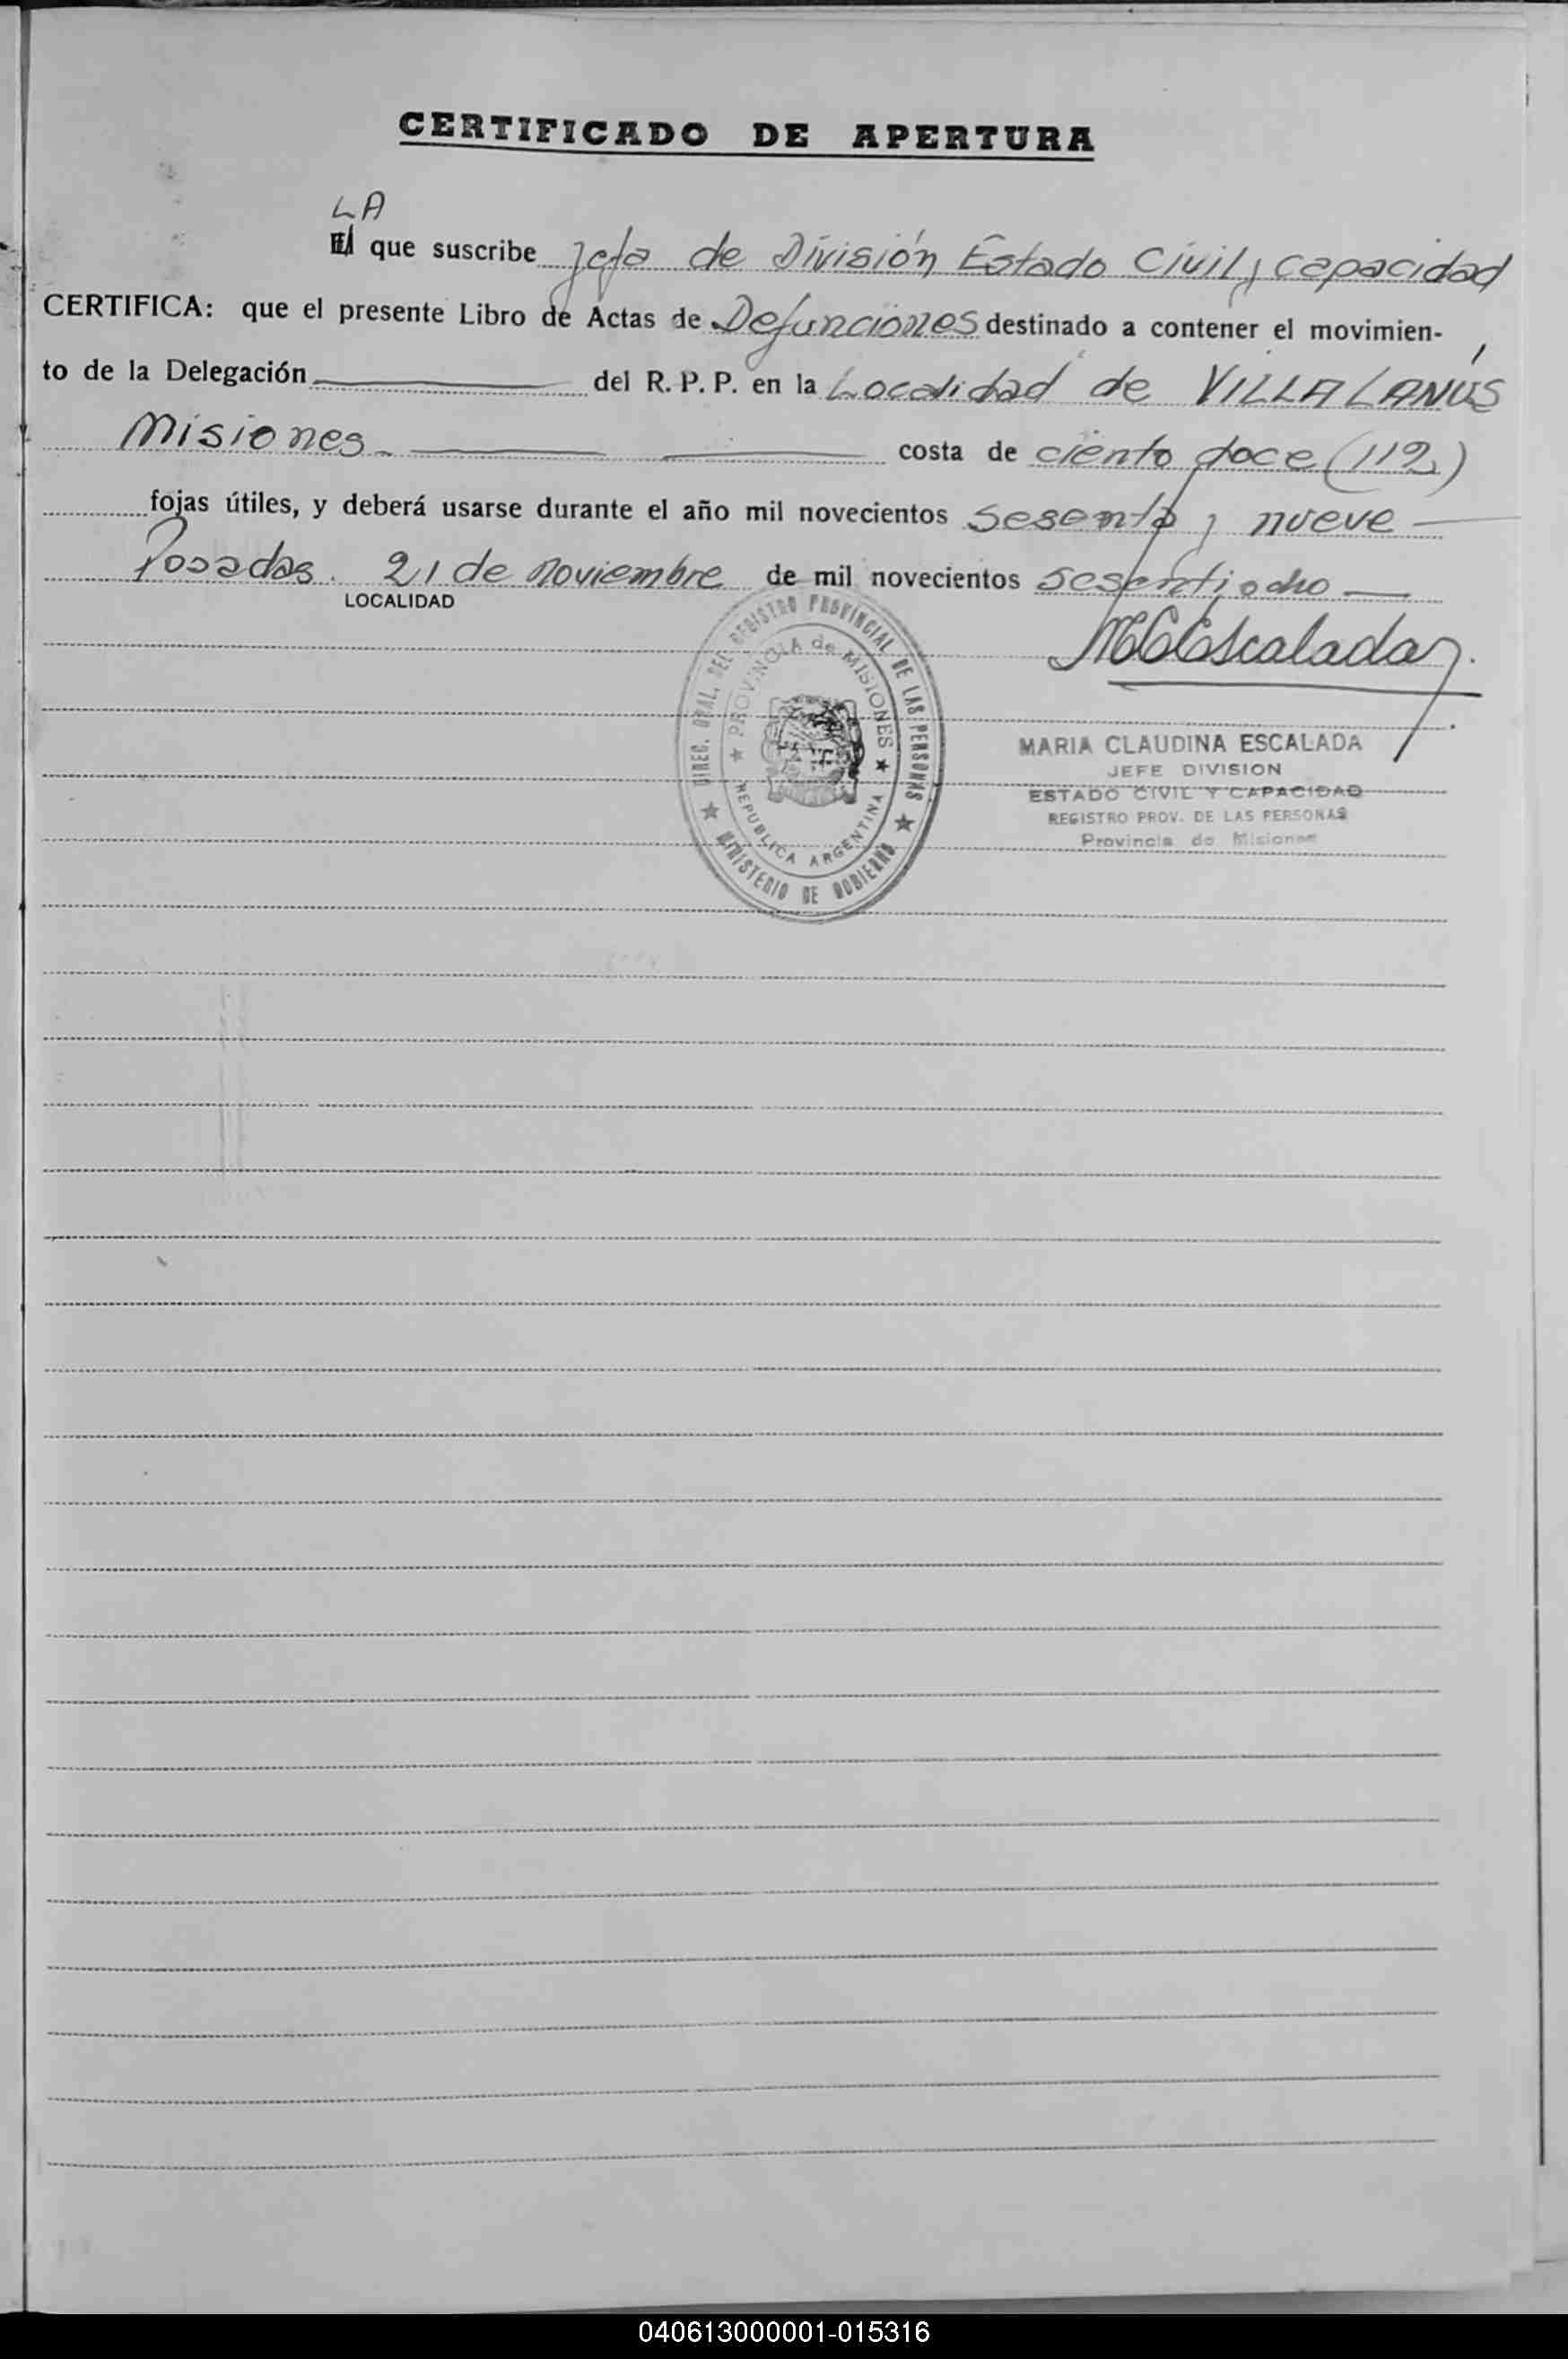 CERTIFICADO DE APERTURA
LA
El que suscribe Jefa de División Estado Civil y capacidad
CERTIFICA: que el presente Libro de Actas de Defunciones destinado a contener el movimien-
to de la Delegación del R. P. P. en la Localidad de VILLA LANÚS
Misiones costa de ciento doce (112)
fojas útiles, y deberá usarse durante el año mil novecientos sesenta y nueve
Posadas. 21 de noviembre de mil novecientos sesentiocho
LOCALIDAD
MCEscalada
DIREC. GRAL. DEL REGISTRO PROVINCIAL DE LAS PERSONAS
PROVINCIA de MISIONES
REPUBLICA ARGENTINA
MINISTERIO DE GOBIERNO
MARIA CLAUDINA ESCALADA
JEFE DIVISION
ESTADO CIVIL Y CAPACIDAD
REGISTRO PROV. DE LAS PERSONAS
Provincia de Misiones
040613000001-015316